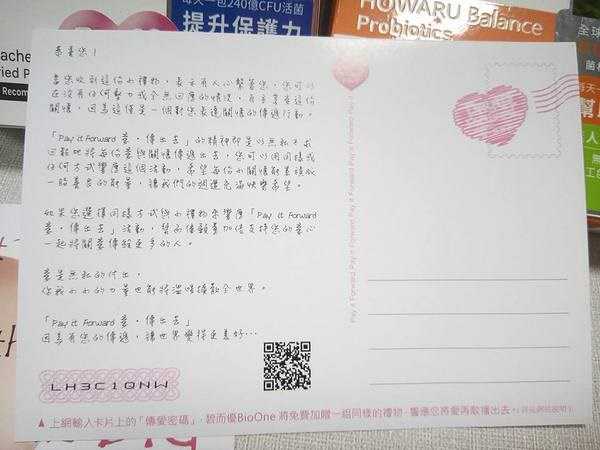 每天一包240億CFU活菌
提升保護力
HOWARU Balance
Probiotics
恭喜您！
當您收到這份小禮物，表示有人心繫著您，您可以
在沒有任何壓力或金無回應的情況，自自享受這份
關懷，因為這僅是一個對您表達關懷的傳遞行動。
「Pay it Forward 愛·傳出去」的精神即是以無私不求
回報地將每份愛與關懷傳遞出去，您可以用同樣或
任何方式響應這個活動，希望每份小關懷能累積成
一股善良的能量，讓我們的週遭充滿快樂希望。
如果您選擇同樣方式與小禮物來響應「Pay it Forward
愛·傳出去」活動，碧而優願意加倍支持您的愛心
一起將關愛傳給更多的人。
愛是無私的付出，
你我小小的力量也能將溫暖擴散全世界。
「Pay it Forward 愛·傳出去」
因為有您的傳遞，讓世界變得更美好…
Pay it Forward Pay it Forward Pay it Forward Pay it Forward
LH3C1QNW
▲上網輸入卡片上的「傳愛密碼」，碧而優BioOne 將免費加贈一組同樣的禮物，響應您將愛再散播出去